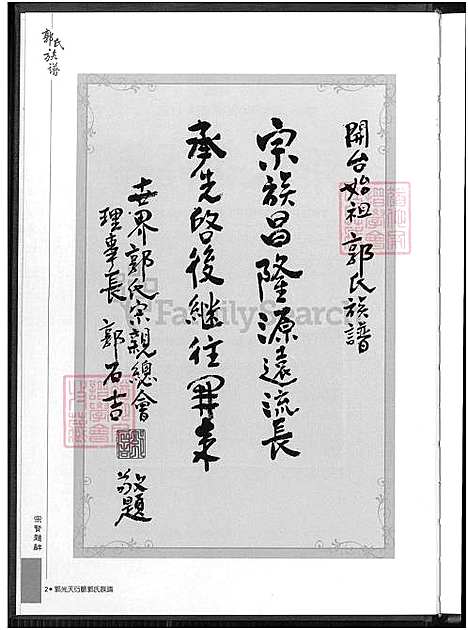 郭氏族譜
開台始祖郭氏族譜
宗族昌隆源遠流長
承先啓後継往開来
世界郭氏宗親總會
理事長 郭石吉
敬題
FamilySearch
宗賢題辭
2•郭光天衍慶郭氏族譜